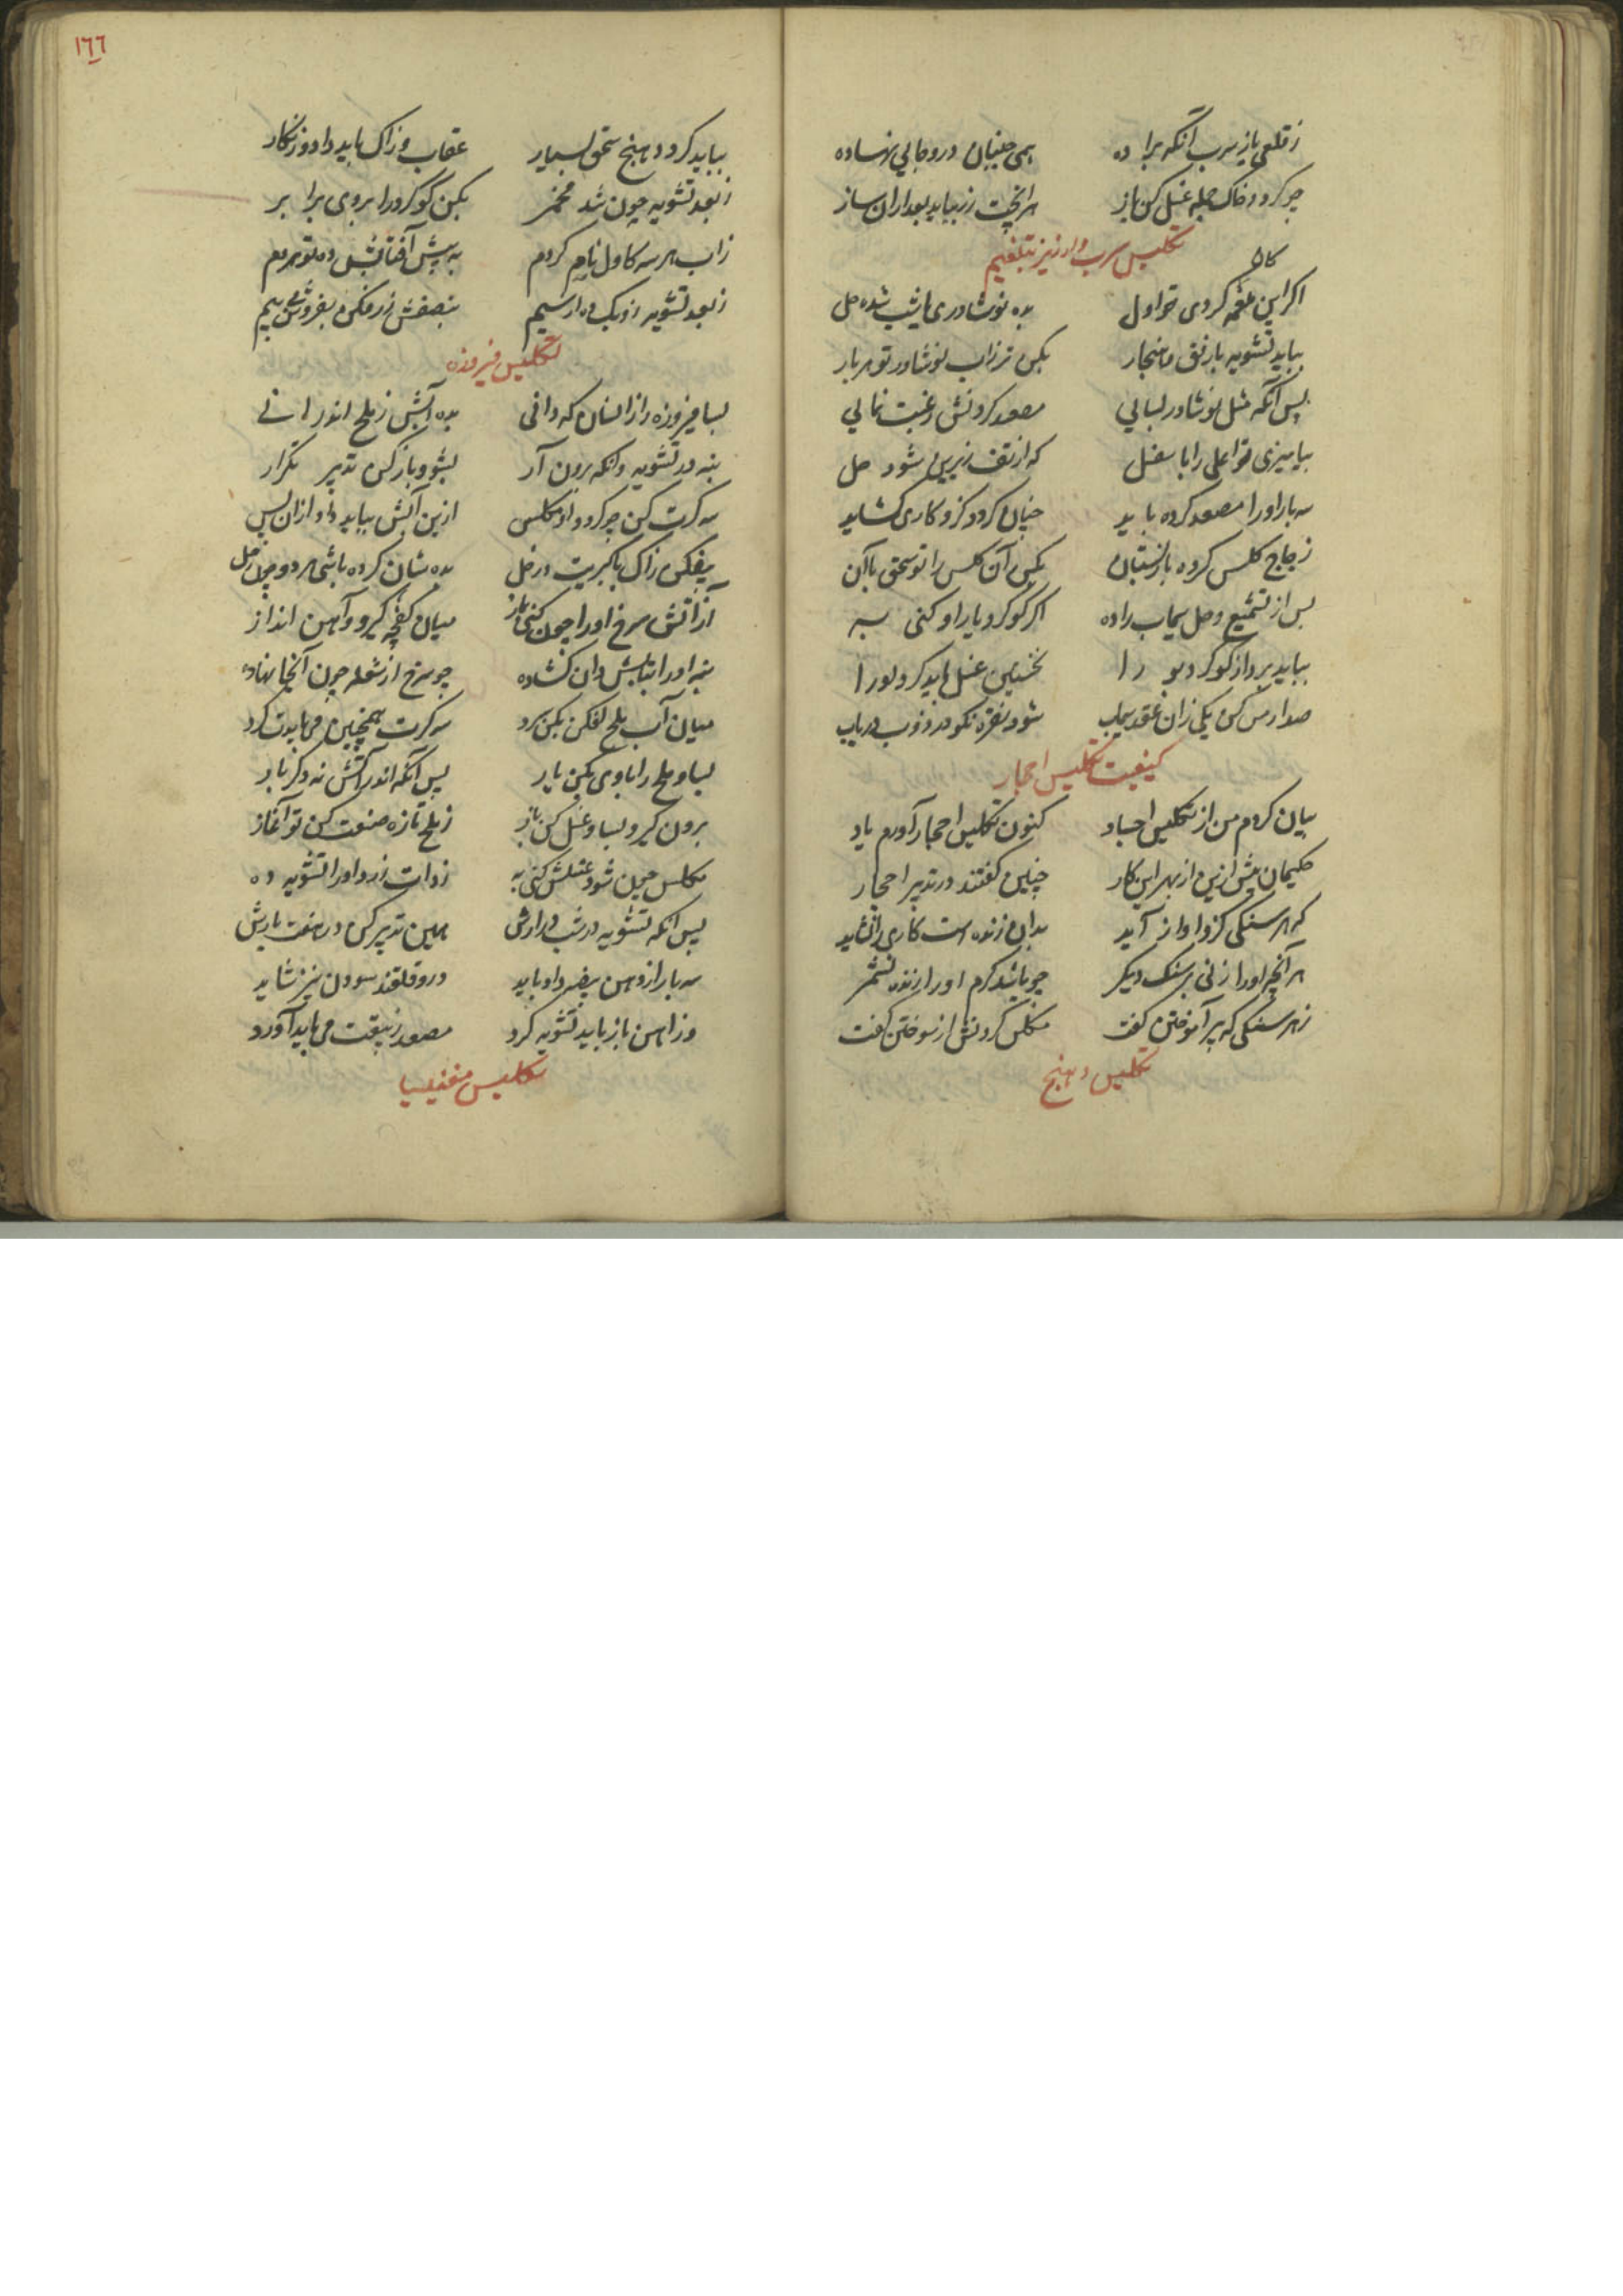 ز قلعی یا ز سرب آنگه براده همی جنبان درو جایی نهاده
چو گردد خاک جمله غسل کن باز هر آنچت زر بباید بعد ازان ساز
تکلیس سرب و ارزیز
کان
اگر این کردی تو اول بده نوشادری شده حل
بباید تشویه با رفق و هنجار بکن تر زاب نوشادر تو هر بار
پس آنگه مثل نوشادر بسایی مصعد کردنش رغبت نمایی
بیامیزی تو اعلی را با سفل که از تف زیرین شود حل
سه بار او را مصعد کرده باید چنان گردد کزو کاری گشاید
زجاج کلس کرده باز بستان بکن آن کلس را تو سحق با آن
پس از تشمیع و حل سیماب را ده اگر گوگرد یار او کنی به
بباید بر گوگرد را نخستین غسل باید کرد او را
صد از مس کن یکی زان عقد سیماب شود نقره نکو در ذوب دریاب
کیفیت تکلیس احجار
بیان کردم من از تکلیس اجساد کنون تکلیس احجار آورم یاد
حکیمان پیش ازین از بهر این کار چنین گفتند در تدبیر احجار
که هر سنگی کزو آواز آید بدان زنده است کاری را نشاید
هر آنچ او را زنی بر سنگ دیگر چو باشد گرم او را زنده نشمر
ز هر سنگی که پیر آموختن گفت مکلس کردنش از سوختن گفت
تکلیس دهنج
بباید کرد دهنج سحق بسیار عقاب و زاک باید داد و زنگار
ز بعد تشویه چون شد مخمر بکن گوگرد را بر وی برابر
زاب هر سه کاول نام کردم به پیش آفتابش ده تو هر دم
ز بعد تشویه زو یک ده از سیم بنصفش زر فکن بفروش بی بیم
تکلیس فیروزه
بسا فیروزه را زانسان که دانی بده آتش ز ملح اندر
بنه در تشویه وانگه برون آر بشو و باز کن تدبیر تکرار
سه کرت کن چو گردد او مکلس ازین آتش بباید داد ازان پس
بیفکن زاک با کبریت در خل بده شان کرده باشی هر دو چون حل
از آتش سرخ او را چون کنی باز میان کفچه گیر و آهن انداز
بنه او را بتابش دان گشاده چو سرخ از شعله چون آنجا نهاده
میان آب ملح افکن بکن سرد سه کرت همچنین می بایدت کرد
بسا و ملح را با وی بکن یار پس آنگه اندر آتش نه دگر بار
برون گیر و بسا و غسل کن باز ز ملح تازه صنعت کن تو آغاز
مکلس چون شود غسلش کنی به ز زرد او را تشویه ده
پس آنگه تشویه در شب در آرش همین تدبیر کن در هفت بارش
سه بار از دهن بیضه داد باید درو قلقند سودن نیز شاید
وز آهن باز باید تشویه کرد مصعد زیبقت می باید آورد
تکلیس مغنیسیا
١٦٦